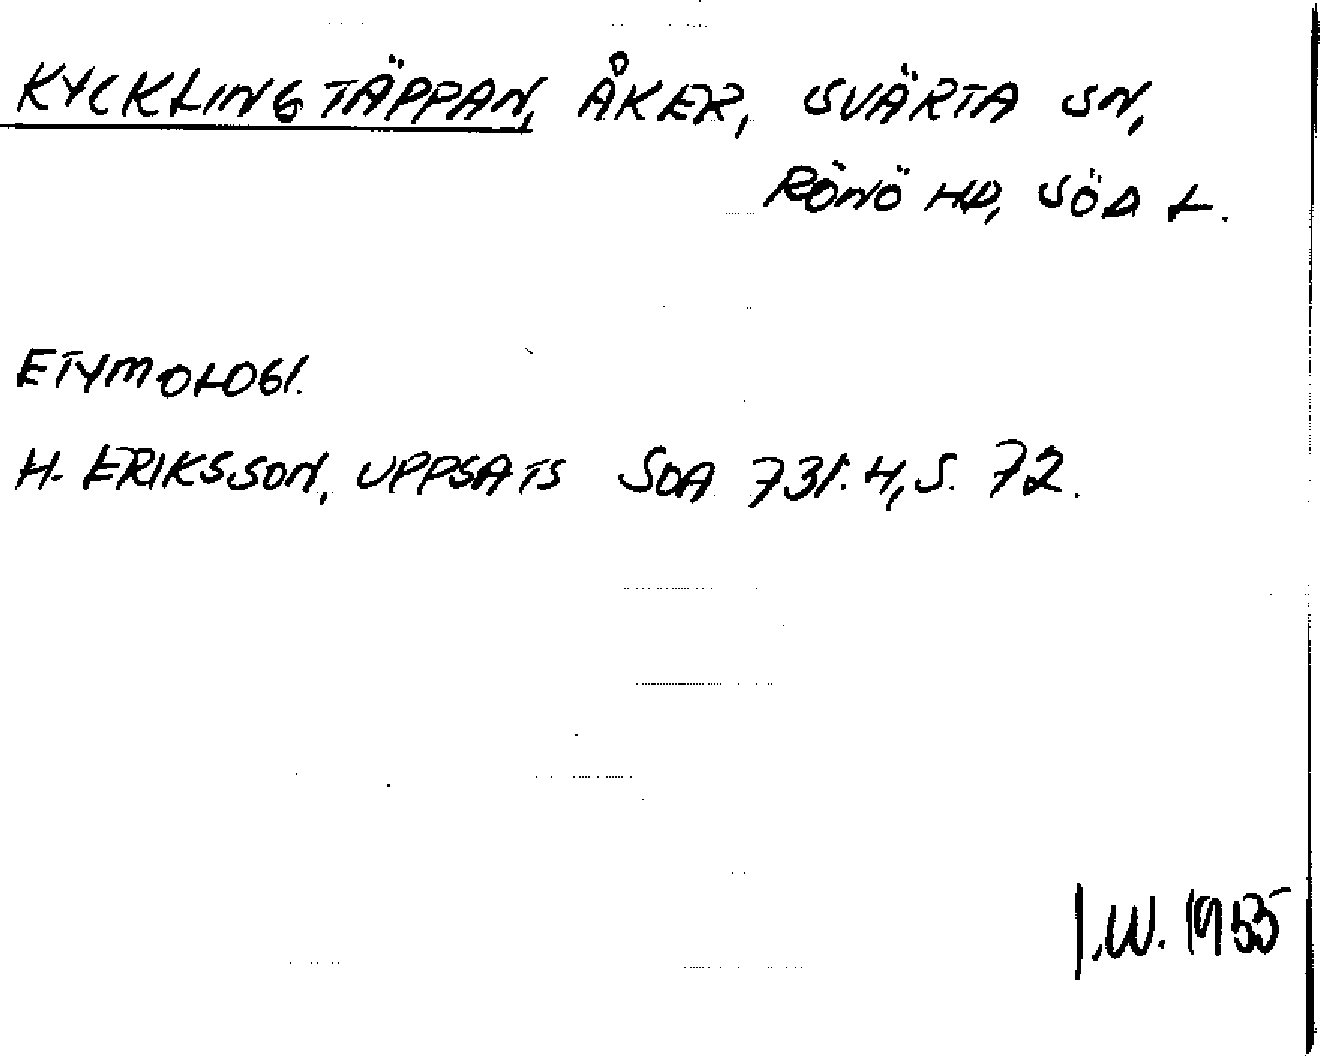 KYCKLINGTÄPPAN, ÅKER, SVÄRTA SN,
RÖNÖ HD, SÖD L.
ETYMOLOGI.
H. ERIKSSON, UPPSATS SOA 731:4, S. 72.
I.W. 1955